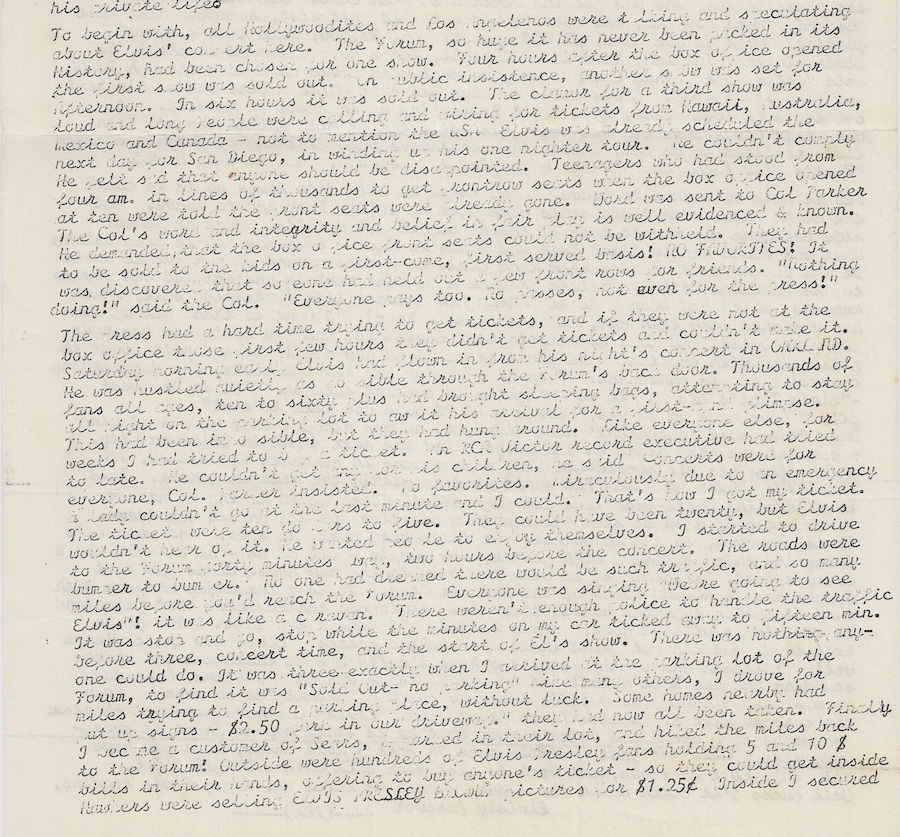 his private life?
To begin with, all Hollywoodites and Los Angelenos were t lking and speculating
about Elvis' concert here. The Forum, so huge it has never been packed in its
History, had been chosen for one show. Four hours after the box office opened
the first show was sold out. On public insistence, another show was set for
Afternoon. In six hours it was sold out. The clamor for a third show was
loud and long People were calling and wiring for tickets from Hawaii, Australia,
Mexico and Canada - not to mention the USA Elvis was already scheduled the
next day for San Diego, in winding up his one nighter tour. He couldn't comply
He felt sad that anyone should be disappointed. Teenagers who had stood from
four am. in lines of thousands to get frontrow seats when the box office opened
at ten were told the front seats were already gone. Word was sent to Col Parker
The Col's word and integrity and belief in fair play is well evidenced & known.
He demanded, that the box office front seats could not be withheld. They had
to be sold to the kids on a first-come, first served basis! NO FAVORITES! It
was discovered that someone had held out a few front rows for friends. "Nothing
doing!" said the Col. "Everyone pays too. No passes, not even for the press!"
The Press had a hard time trying to get tickets, and if they were not at the
box office those first few hours they didn't get tickets and couldn't make it.
Saturday morning early Elvis had flown in from his night's concert in OAKLAND.
He was hustled quietly as possible through the Forum's back door. Thousands of
fans all ages, ten to sixty plus had brought sleeping bags, attempting to stay
all night on the parking lot to await his arrival for a first-hand glimpse.
This had been impossible, but they had hung around. Like everyone else, for
weeks I had tried to buy a ticket. An RCA Victor record executive had tried
to late. He couldn't get any for his children, he said Concerts were for
everyone, Col. Parker insisted. No favorites. Miraculously due to an emergency
a lady couldn't go at the last minute and I could. That's how I got my ticket.
The ticket were ten dollars to five. They could have been twenty, but Elvis
wouldn't hear of it. He wanted people to enjoy themselves. I started to drive
to the Forum forty minutes way, two hours before the concert. The roads were
bumper to bumper. No one had dreamed there would be such traffic, and so many
miles before you'd reach the Forum. Everyone was singing "We're going to see
Elvis"! it was like a caravan. There weren't enough police to handle the traffic
It was stop and go, stop while the minutes on my car ticked away to fifteen min.
before three, concert time, and the start of El's show. There was nothing any-
one could do. It was three exactly when I arrived at the parking lot of the
Forum, to find it was "Sold Out- no parking" Like many others, I drove for
miles trying to find a parking place, without luck. Some homes nearby had
put up signs - $2.50 park in our driveway." they had now all been taken. Finally
I became a customer of Sears, parked in their lot, and hiked the miles back
to the Forum! Outside were hundreds of Elvis Presley fans holding 5 and 10 $
bills in their hands, offering to buy anyone's ticket - so they could get inside
Hawkers were selling ELVIS PRESLEY pictures for $1.25¢ Inside I secured